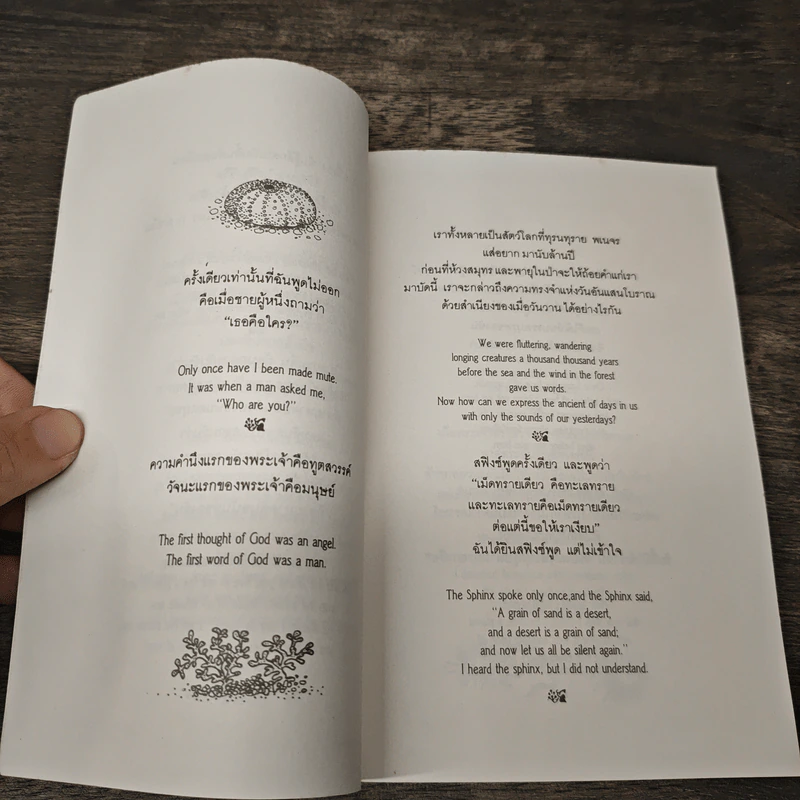 ครั้งเดียวเท่านั้นที่ฉันพูดไม่ออก
คือเมื่อชายผู้หนึ่งถามว่า
“เธอคือใคร?”
Only once have I been made mute.
It was when a man asked me,
“Who are you?”
ความคำนึงแรกของพระเจ้าคือทูตสวรรค์
วัจนะแรกของพระเจ้าคือมนุษย์
The first thought of God was an angel.
The first word of God was a man.
เราทั้งหลายเป็นสัตว์โลกที่ทุรนทุราย พเนจร
แส่อยาก มานับล้านปี
ก่อนที่ห้วงสมุทร และพายุในป่าจะให้ถ้อยคำแก่เรา
มาบัดนี้ เราจะกล่าวถึงความทรงจำแห่งวันอันแสนโบราณ
ด้วยสำเนียงของเมื่อวันวาน ได้อย่างไรกัน
We were fluttering, wandering
longing creatures a thousand thousand years
before the sea and the wind in the forest
gave us words.
Now how can we express the ancient of days in us
with only the sounds of our yesterdays?
สฟิงซ์พูดครั้งเดียว และพูดว่า
“เม็ดทรายเดียว คือทะเลทราย
และทะเลทรายคือเม็ดทรายเดียว
ต่อแต่นี้ขอให้เราเงียบ”
ฉันได้ยินสฟิงซ์พูด แต่ไม่เข้าใจ
The Sphinx spoke only once,and the Sphinx said,
“A grain of sand is a desert,
and a desert is a grain of sand;
and now let us all be silent again.”
I heard the sphinx, but I did not understand.